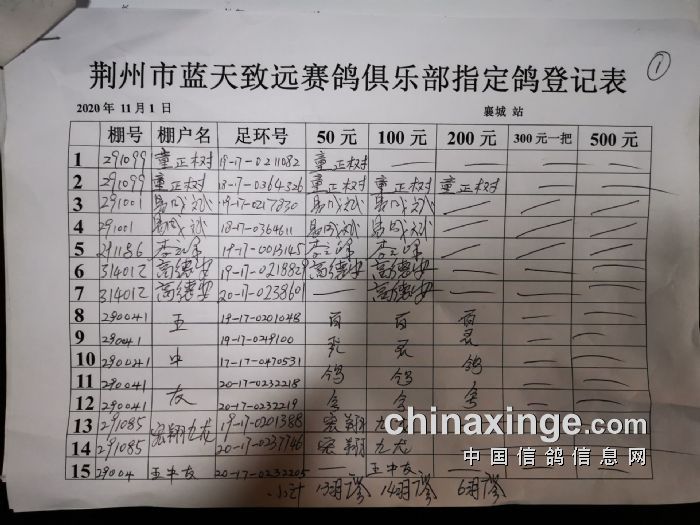 ①
荆州市蓝天致远赛鸽俱乐部指定鸽登记表
2020年11月1日 襄城 站
棚号 棚户名 足环号 50元 100元 200元 300元一把 500元
1 291099 童正树 19-17-0211082 童正树 — — — —
2 291099 童正树 18-17-0364326 童正树 童正树 童正树 — —
3 291001 19-17-0217830 — — —
4 291001 18-17-0364611 — — —
5 291186 19-17-0013145 — — —
6 314012 高德安 19-17-0218829 高德安 高德安 — — —
7 314012 高德安 20-17-0238601 — 高德安 — — —
8 290041 王 19-17-0201048 百 百 百 — —
9 290041 19-17-0249100 灵 灵 — —
10 290041 中 17-17-0470531 鸽 鸽 鸽 — —
11 290041 20-17-0232218 — —
12 290041 友 20-17-0232219 — —
13 291085 宏翔九龙 19-17-0201388 宏翔 九龙
14 291085 20-17-0237746 宏翔 九龙
15 29004 王中友 20-17-0232205 — 王中友 — — —
小计 13羽 14羽 6羽
chinaxinge.com
中国信鸽信息网